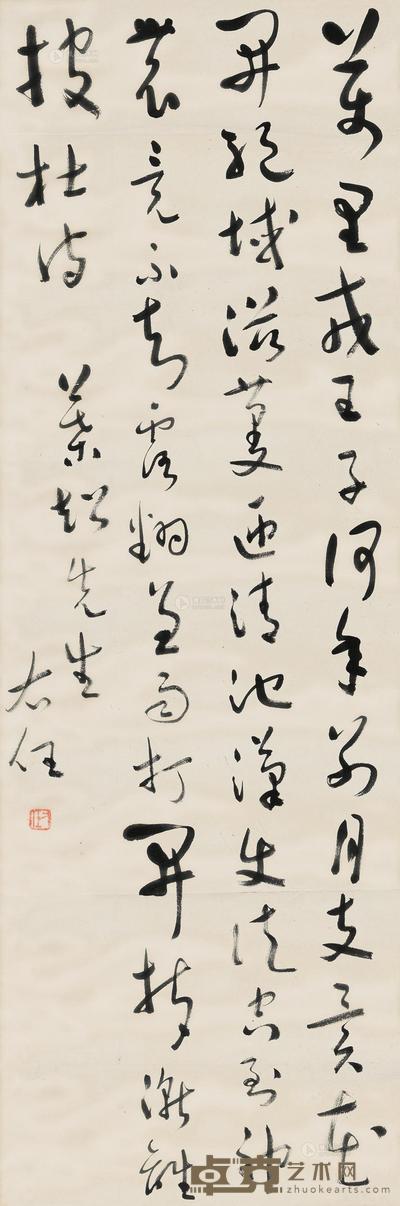 萬里戎王子何年別月支異花
開絕域滋蔓匝清池漢使徒空到神
農竟不知露翻兼雨打開坼漸離
披杜詩
葉超先生
右任
卓克艺术网
zhuokearts.com